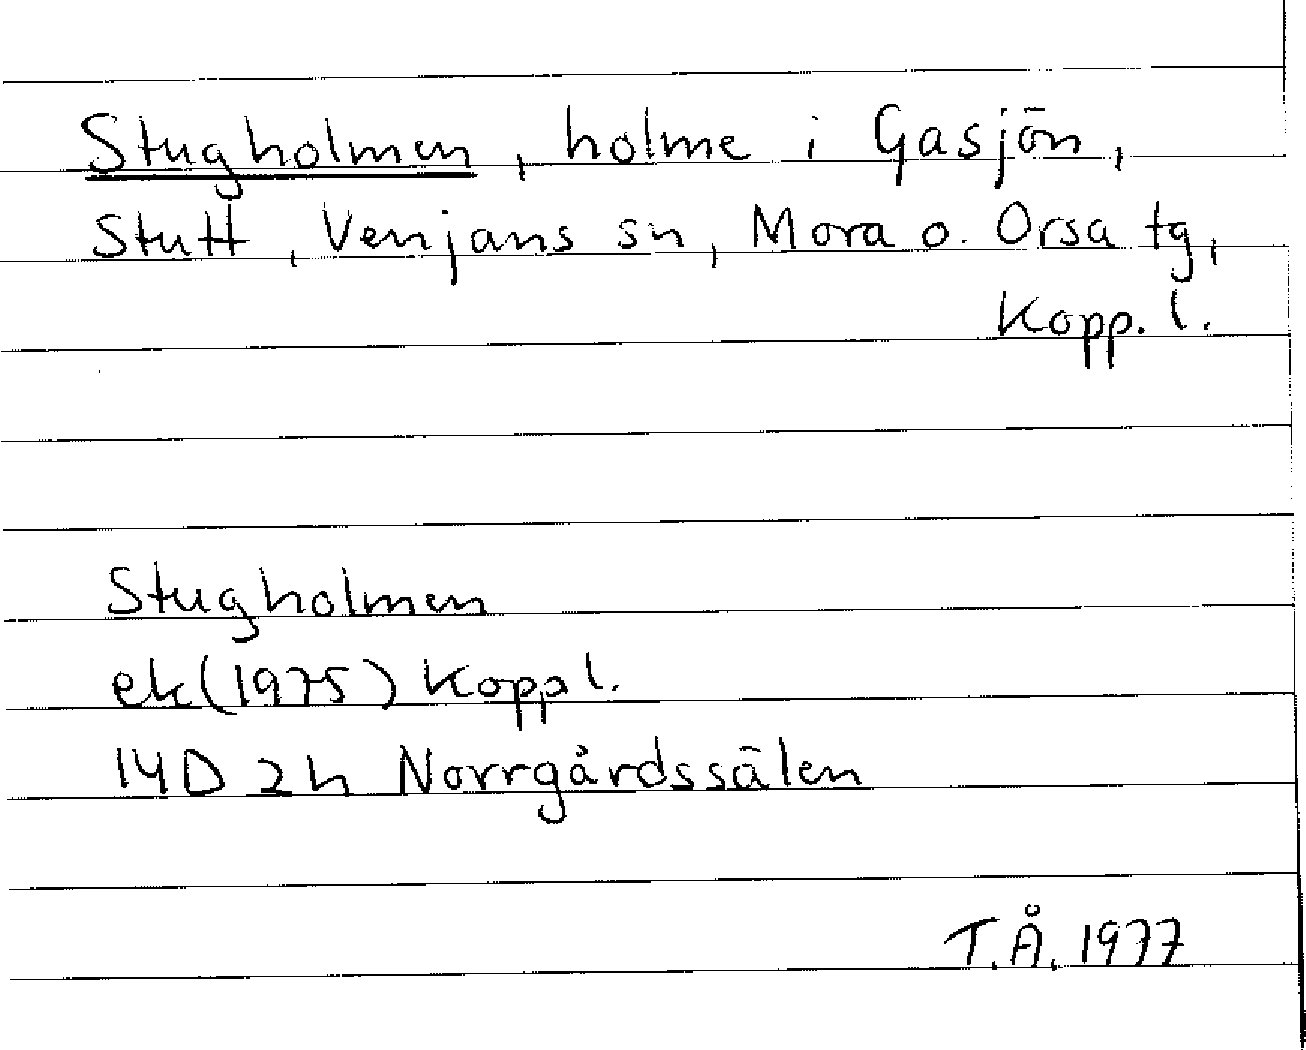 Stugholmen, holme i Gasjön,
Stutt, Venjans sn, Mora o. Orsa tg,
Kopp. l.
Stugholmen
ek (1975) Kopp l.
14D 2h Norrgårdssälen
T.Å. 1977